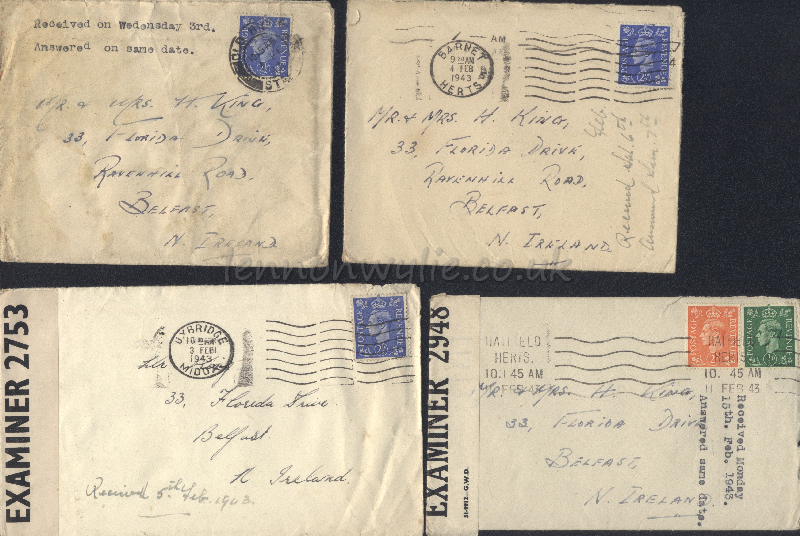 Received on Wednesday 3rd.
Answered on same date.
Mr. & Mrs. H. King,
33, Florida Drive,
Ravenhill Road,
Belfast,
N. Ireland
BARNET
9 AM
4 FEB
1943
HERTS
AM
POSTAGE REVENUE
Mr. & Mrs. H. King,
33, Florida Drive,
Ravenhill Road,
Belfast,
N. Ireland
Received Sat. 6th Feb.
Answered Sun. 7th
Tennonwylie.co.uk
EXAMINER 2753
UXBRIDGE
3 FEB
1943
MIDDX
POSTAGE REVENUE
33, Florida Drive
Belfast
N Ireland.
Received 5th Feb. 1943.
EXAMINER 2948
HATFIELD
HERTS.
10.45 AM
11 FEB 43
POSTAGE REVENUE
POSTAGE REVENUE
10. 45 AM
11 FEB 43
Mr. & Mrs. H. King,
33, Florida Drive
Belfast,
N. Ireland
Received Monday
15th. Feb. 1943.
Answered same date.